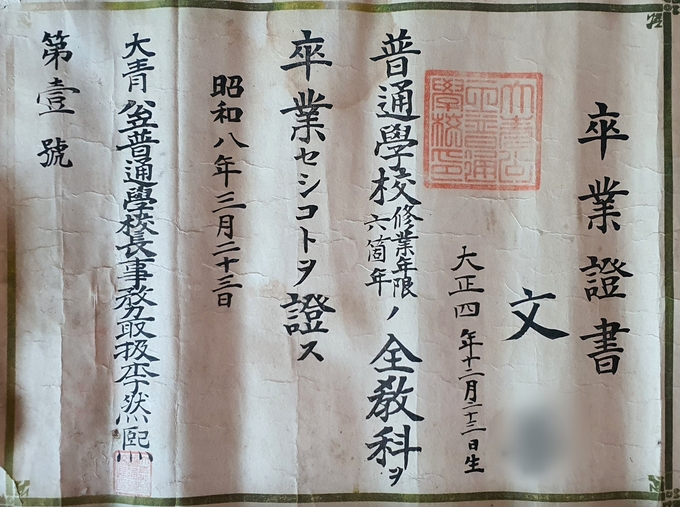 卒業證書
文
大正四年十二月二十二日生
大青公
立普通
學校印
普通學校修業年限六箇年ノ全教科ヲ
卒業セシコトヲ證ス
昭和八年三月二十三日
大青公立普通學校長事務取扱李然熙
第壹號